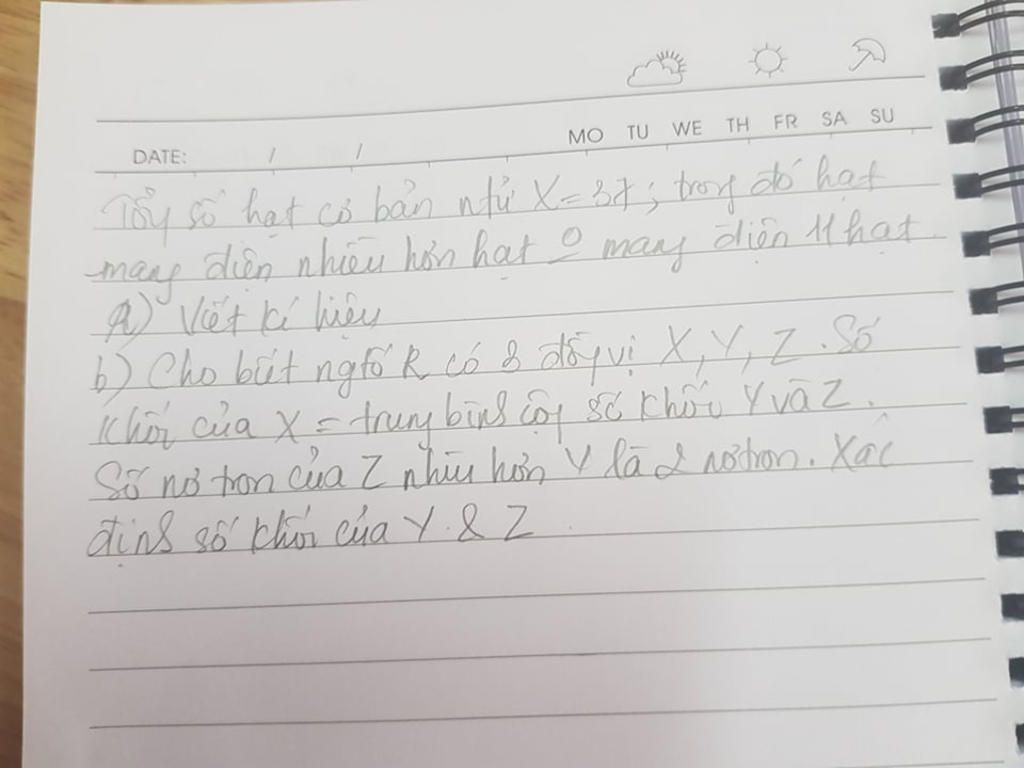 MO TU WE TH FR SA SU
DATE: / /
Tổng số hạt cơ bản ntử X = 37; trong đó hạt
mang điện nhiều hơn hạt 0 mang điện 11 hạt.
a) Viết kí hiệu
b) Cho biết ngtố R có 3 đồng vị X, Y, Z. Số
khối của X = trung bình cộng số khối Y và Z.
Số nơ tron của Z nhiều hơn Y là 2 nơtron. Xác
định số khối của Y & Z.